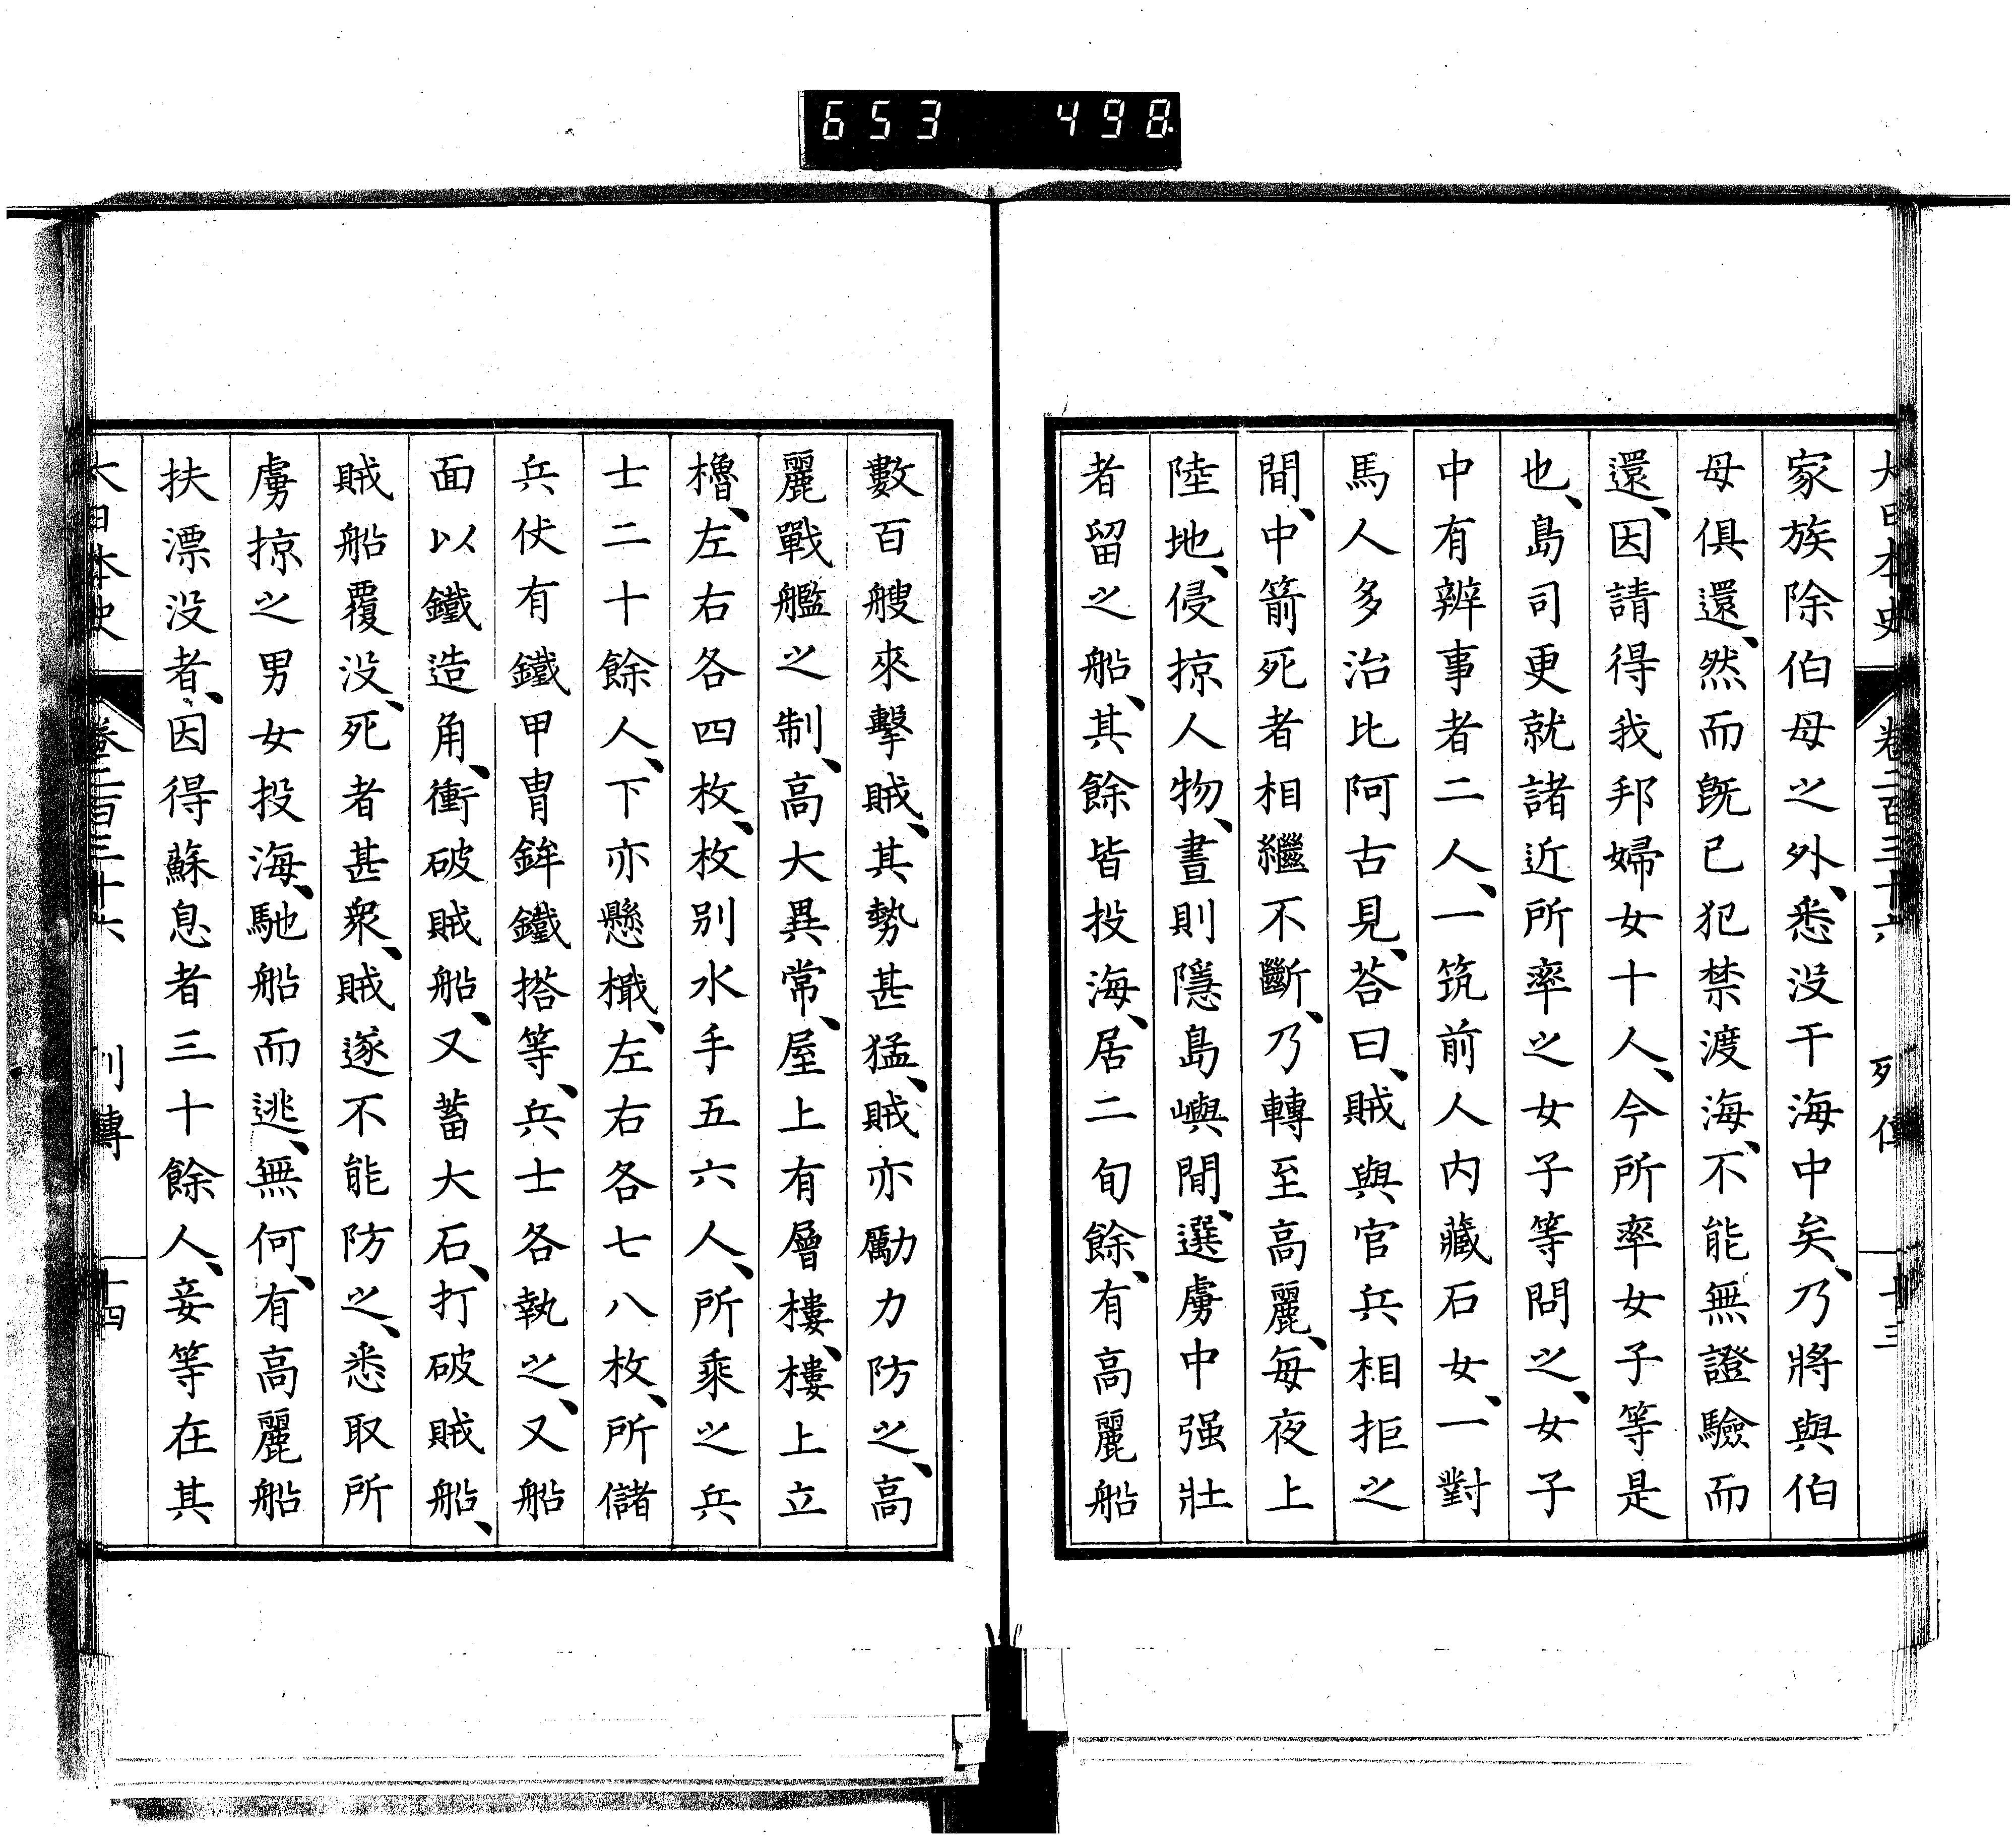 653 498
大日本史 卷二百三十六 列傳 十三
家族除伯母之外、悉没干海中矣、乃將與伯
母俱還、然而既已犯禁渡海、不能無證驗而
還、因請得我邦婦女十人、今所率女子等是
也、島司更就諸近所率之女子等問之、女子
中有辨事者二人、一筑前人内藏石女、一對
馬人多治比阿古見、荅曰、賊與官兵相拒之
間、中箭死者相繼不斷、乃轉至高麗、每夜上
陸地、侵掠人物、晝則隱島嶼間、選虜中强壯
者留之船、其餘皆投海、居二旬餘、有高麗船
數百艘來擊賊、其勢甚猛、賊亦勵力防之、高
麗戰艦之制、高大異常、屋上有層樓、樓上立
櫓、左右各四枚、枚别水手五六人、所乘之兵
士二十餘人、下亦懸檝、左右各七八枚、所儲
兵仗有鐵甲冑鉾鐵搭等、兵士各執之、又船
面以鐵造角、衝破賊船、又蓄大石、打破賊船、
賊船覆没、死者甚衆、賊遂不能防之、悉取所
虜掠之男女投海、馳船而逃、無何、有高麗船
扶漂没者、因得蘇息者三十餘人、妾等在其
大日本史 卷二百三十六 列傳 十四